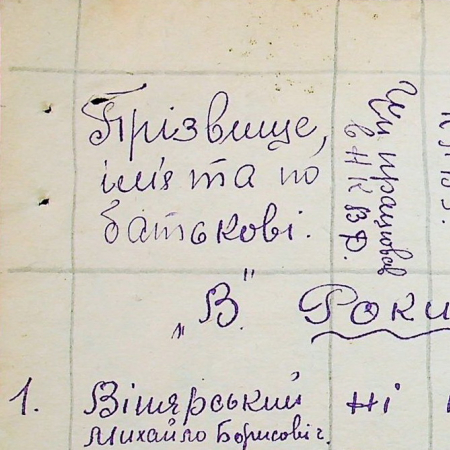 Прізвище,
імя та по
батькові.
Чи працював
в НКВД.
„В." Роки
1. Вітярський ні
Михайло Борисовіч.